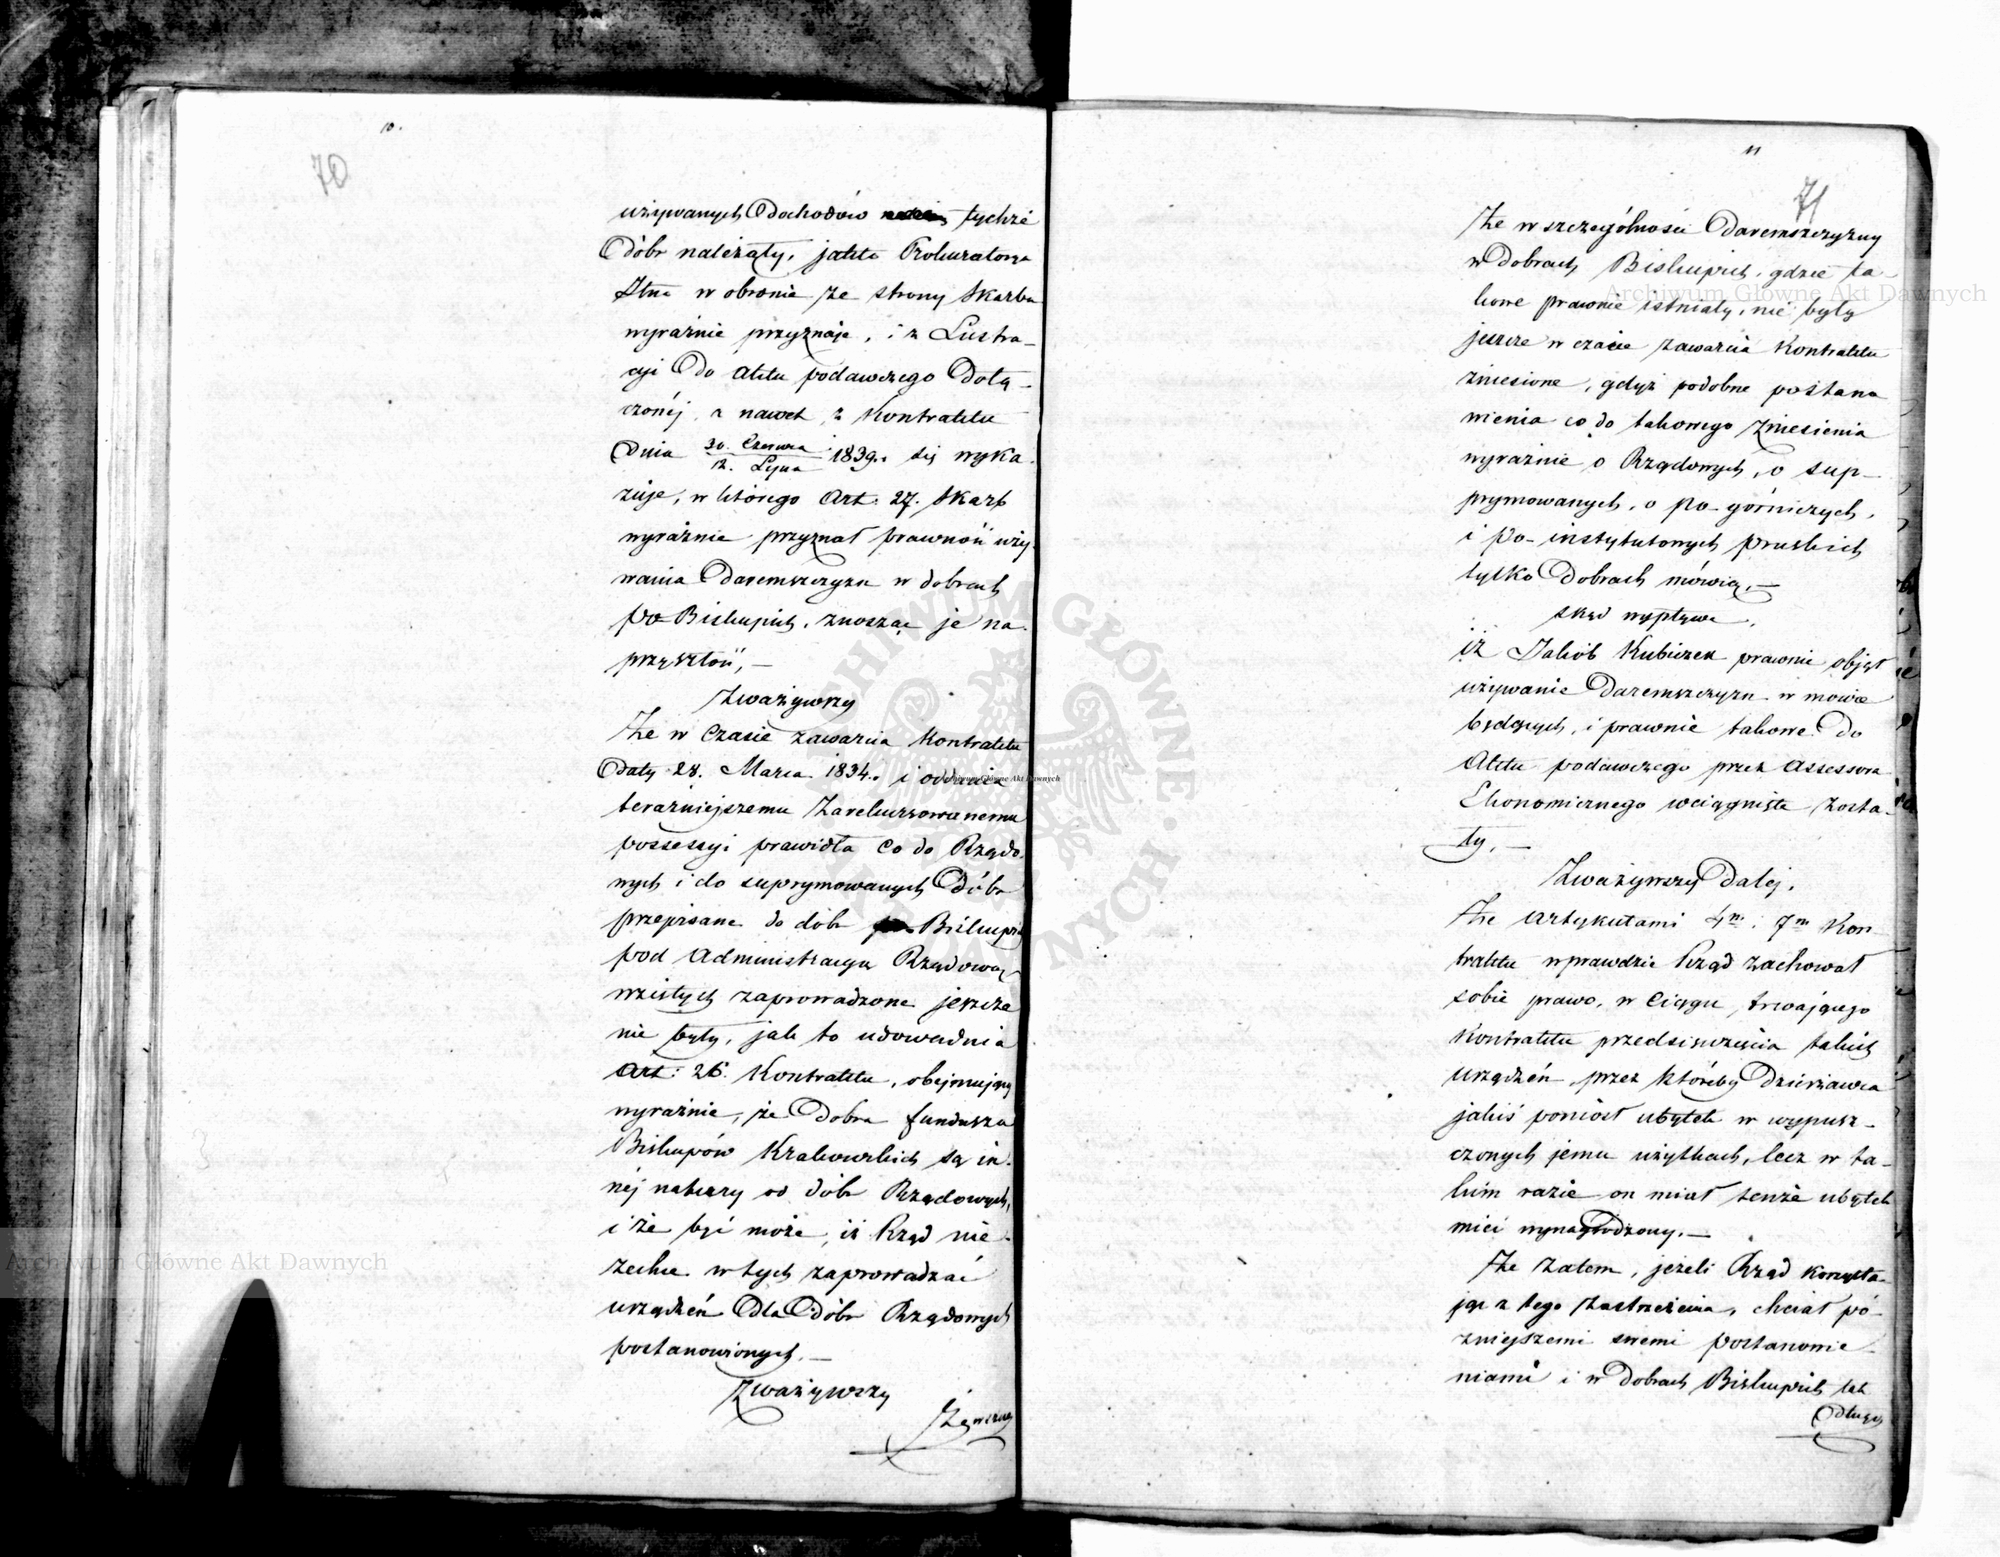 10.
70
używanych Dochodów tychże
Dóbr należały, jakto Prokuratorya
Jlna w obronie ze strony Skarbu
wyraźnie przyznaje, i z Lustra-
cyi Do Aktu podawczego Dołą-
czonéj, a nawet z Kontraktu
Dnia 30. Czerwca / 12. Lipca 1839. się wyka-
zuje, w którego Art: 27. Skarb
wyraźnie przyznał prawność uży-
wania Daremszczyzn w dobrach
po-Biskupich, znosząc je na-
przyszłość, —
Zważywszy
Że w Czasie zawarcia Kontraktu
Daty 28. Marca 1834. i oddania
teraźniejszemu Zarekursowanemu
possessyi prawidła co do Rządo-
wych i do suprymowanych Dóbr
przepisane do dóbr Biskupich
pod Administracyą Rządową
wziętych zaprowadzone jeszcze
nie były, jak to udowadnia
Art: 26. Kontraktu, obejmujący
wyraźnie, że Dobra funduszu
Biskupów Krakowskich są in-
néj natury od dóbr Rządowych,
i że być może, iż Rząd nie-
zechce w tych zaprowadzać
urządzeń Dla Dóbr Rządowych
postanowionych. —
Zważywszy
11
71
Że w szczególności Daremszczyzny
w Dobrach Biskupich, gdzie ta-
kowe prawnie istniały, nie były
jeszcze w czasie zawarcia Kontraktu
zniesione, gdyż podobne postana
wienia co do takowego Zniesienia
wyraźnie o Rządowych, o sup-
prymowanych, o po-górniczych,
i po-instytutowych pruskich
tylko Dobrach mówią, —
skąd wypływa,
iż Jakób Kubiczek prawnie objął
używanie Daremszczyzn w mowie
będących, i prawnie takowe Do
Aktu podawczego przez Assessora
Ekonomicznego wciągnięte zosta-
ły, —
Zważywszy Dalej,
Że artykułami 4m. i 7m Kon-
traktu wprawdzie Rząd zachował
sobie prawo, w Ciągu trwającego
Kontraktu przedsięwzięcia takich
urządzeń, przez któreby Dzierżawca
jakiś poniósł ubytek w wypusz-
czonych jemu użytkach, lecz w ta-
kim razie on miał tenże ubytek
mieć wynagrodzony. —
Że zatem, jeżeli Rząd korzysta-
jąc z tego zastrzeżenia, chciał pó-
zniejszemi swemi postanowie-
niami i w Dobrach Biskupich tak
Długo
Archiwum Główne Akt Dawnych
Archiwum Główne Akt Dawnych
Archiwum Główne Akt Dawnych
ARCHIWUM GŁÓWNE AKT DAWNYCH